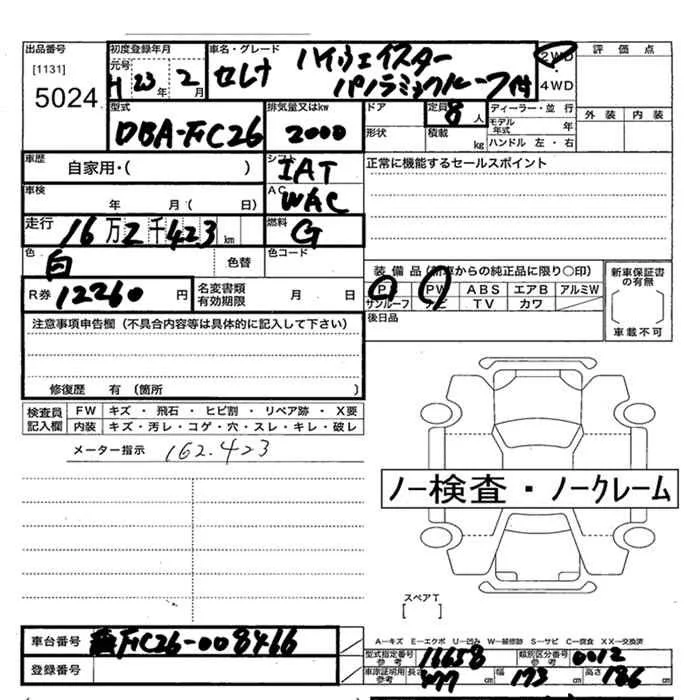 出品番号 初度登録年月 車名・グレード ハイウェイスター 2WD 評価点
[1131] 元号 H 23年 2月 セレナ パノラミックルーフ付 4WD
5024 型式 排気量又はkw ドア 定員 8人 ディーラー・並行 外装 内装
DBA-FC26 2000 形状 積載 kg モデル年式 年
ハンドル 左・右
車歴 自家用・( ) シフト IAT 正常に機能するセールスポイント
車検 年 月( 日) AC WAC
走行 16万2千423km 燃料 G
色 白 色替 色コード
R券 12260円 名変書類有効期限 月 日
装備品(新車からの純正品に限り○印) 新車保証書の有無
P PW ABS エアB アルミW
サンルーフ ナビ TV カワ
後日品 車載不可
注意事項申告欄(不具合内容等は具体的に記入して下さい)
修復歴 有(箇所 )
検査員記入欄 FW キズ・飛石・ヒビ割・リペア跡・X要
内装 キズ・汚レ・コゲ・穴・スレ・キレ・破レ
メーター指示 162.423
ノー検査・ノークレーム
スペアT
[ ]
車台番号 FC26-008466
A-キズ E-エクボ U-凹み W-補修跡 S-サビ C-腐食 XX-交換済
型式指定番号 参考 16658 類別区分番号 参考 0012
登録番号 車庫証明用 参考 長さ 477cm 幅 173cm 高さ 186cm